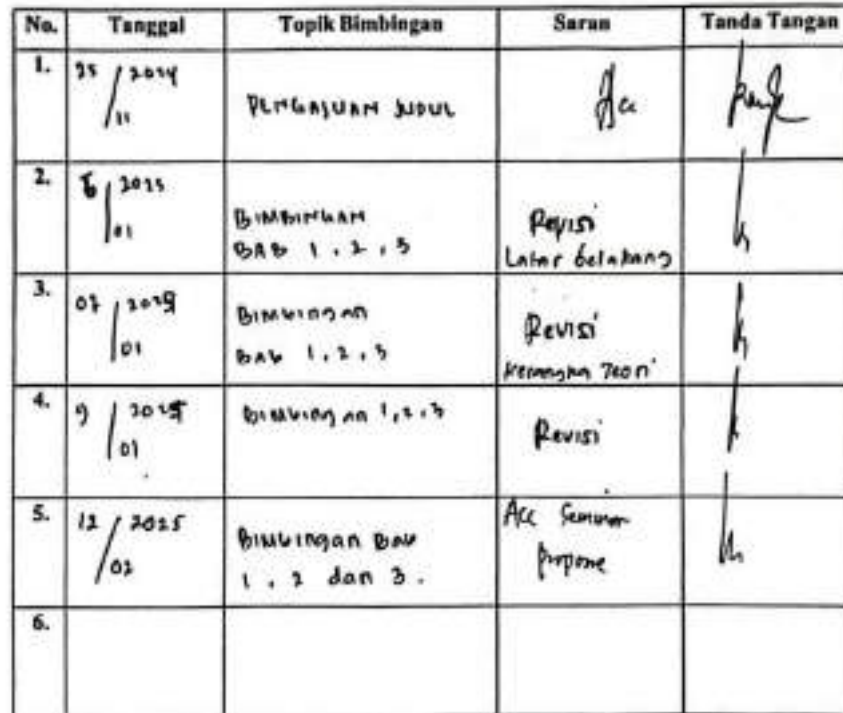 No. Tanggal Topik Bimbingan Saran Tanda Tangan
1. 25 / 2024
11
PENGAJUAN JUDUL
Acc
2. 2025
01
BIMBINGAN
BAB 1, 2, 3
Revisi
Latar belakang
3. 07 / 2025
01
Bimbingan
BAB 1, 2, 3
Revisi
Kerangka Teori
4. 9 / 2025
01
Bimbingan 1, 2, 3
Revisi
5. 12 / 2025
02
Bimbingan Bab
1, 2 dan 3.
Acc Seminar
6.